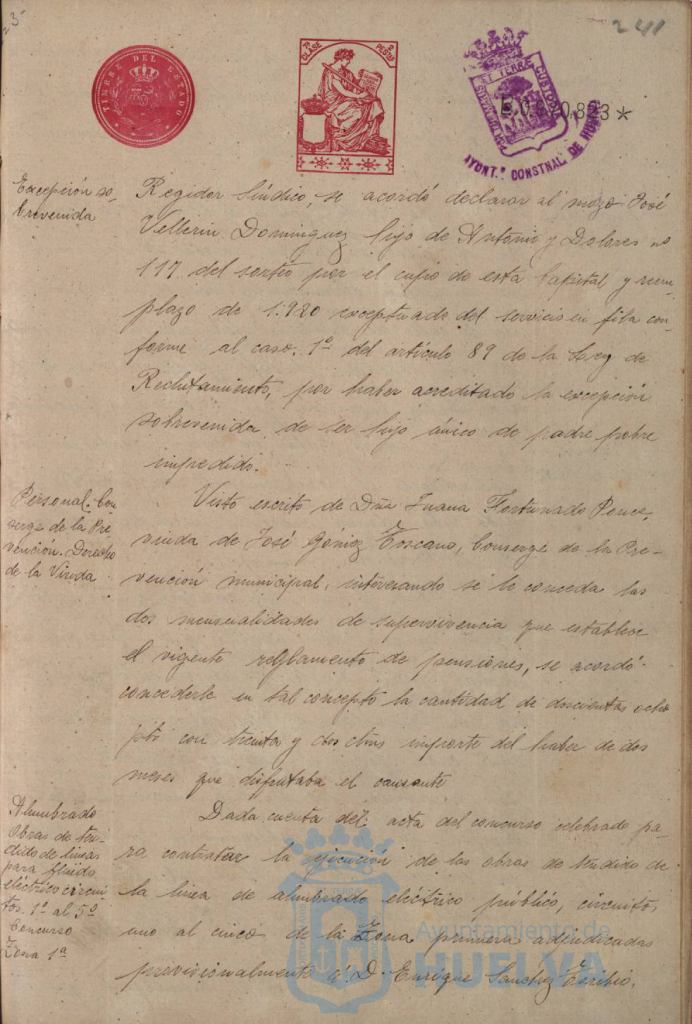 241
TIMBRE DEL ESTADO
7ª CLASE
2 PESETAS
PORTUS MARIS ET TERRÆ CUSTODIA
AYUNTº CONSTNAL DE HUELVA
0.823*
Excepción so-
brevenida
Regidor Síndico, se acordó declarar al mozo José
Vellerin Dominguez hijo de Antonio y Dolores nº
117 del sorteo por el cupo de esta Capital y reem-
plazo de 1.920 exceptuado del servicio en fila con-
forme al caso 1º del artículo 89 de la Ley de
Reclutamiento, por haber acreditado la excepción
sobrevenida de ser hijo único de padre pobre
impedido.
Personal. Con-
serge de la Pre
vención. Derecho
de la Viuda
Visto escrito de Dña Juana Fortunado Ponce,
viuda de José Gómez Toscano, Conserge de la Pre-
vención municipal, interesando se le conceda las
dos mensualidades de supervivencia que establece
el vigente reglamento de pensiones, se acordó
concederle en tal concepto la cantidad de doscientas ocho
pts con treinta y dos ctms importe del haber de dos
meses que disfrutaba el causante
Alumbrado
Obras de ten-
dido de lineas
para flúido
eléctrico circui-
tos 1º al 5º
Concurso
Zona 1ª
Dada cuenta del acta del concurso celebrado pa-
ra contratar la ejecución de las obras de tendido de
la linea de alumbrado eléctrico público, circuitos
uno al cinco de la Zona primera adjudicadas
provisionalmente á D. Enrique Sanchez Toribio,
Ayuntamiento de
HUELVA